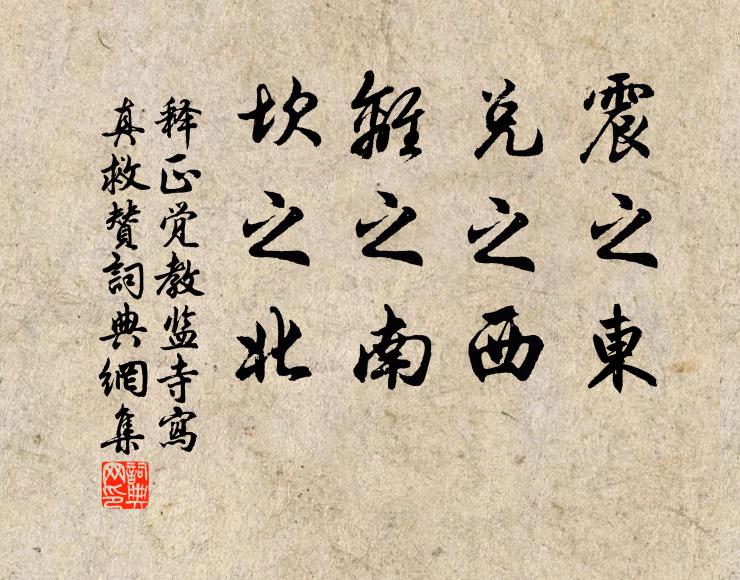 震之東
兑之西
離之南
坎之北
释正觉教监寺寫
真救赞詞典網集
詞典
网印